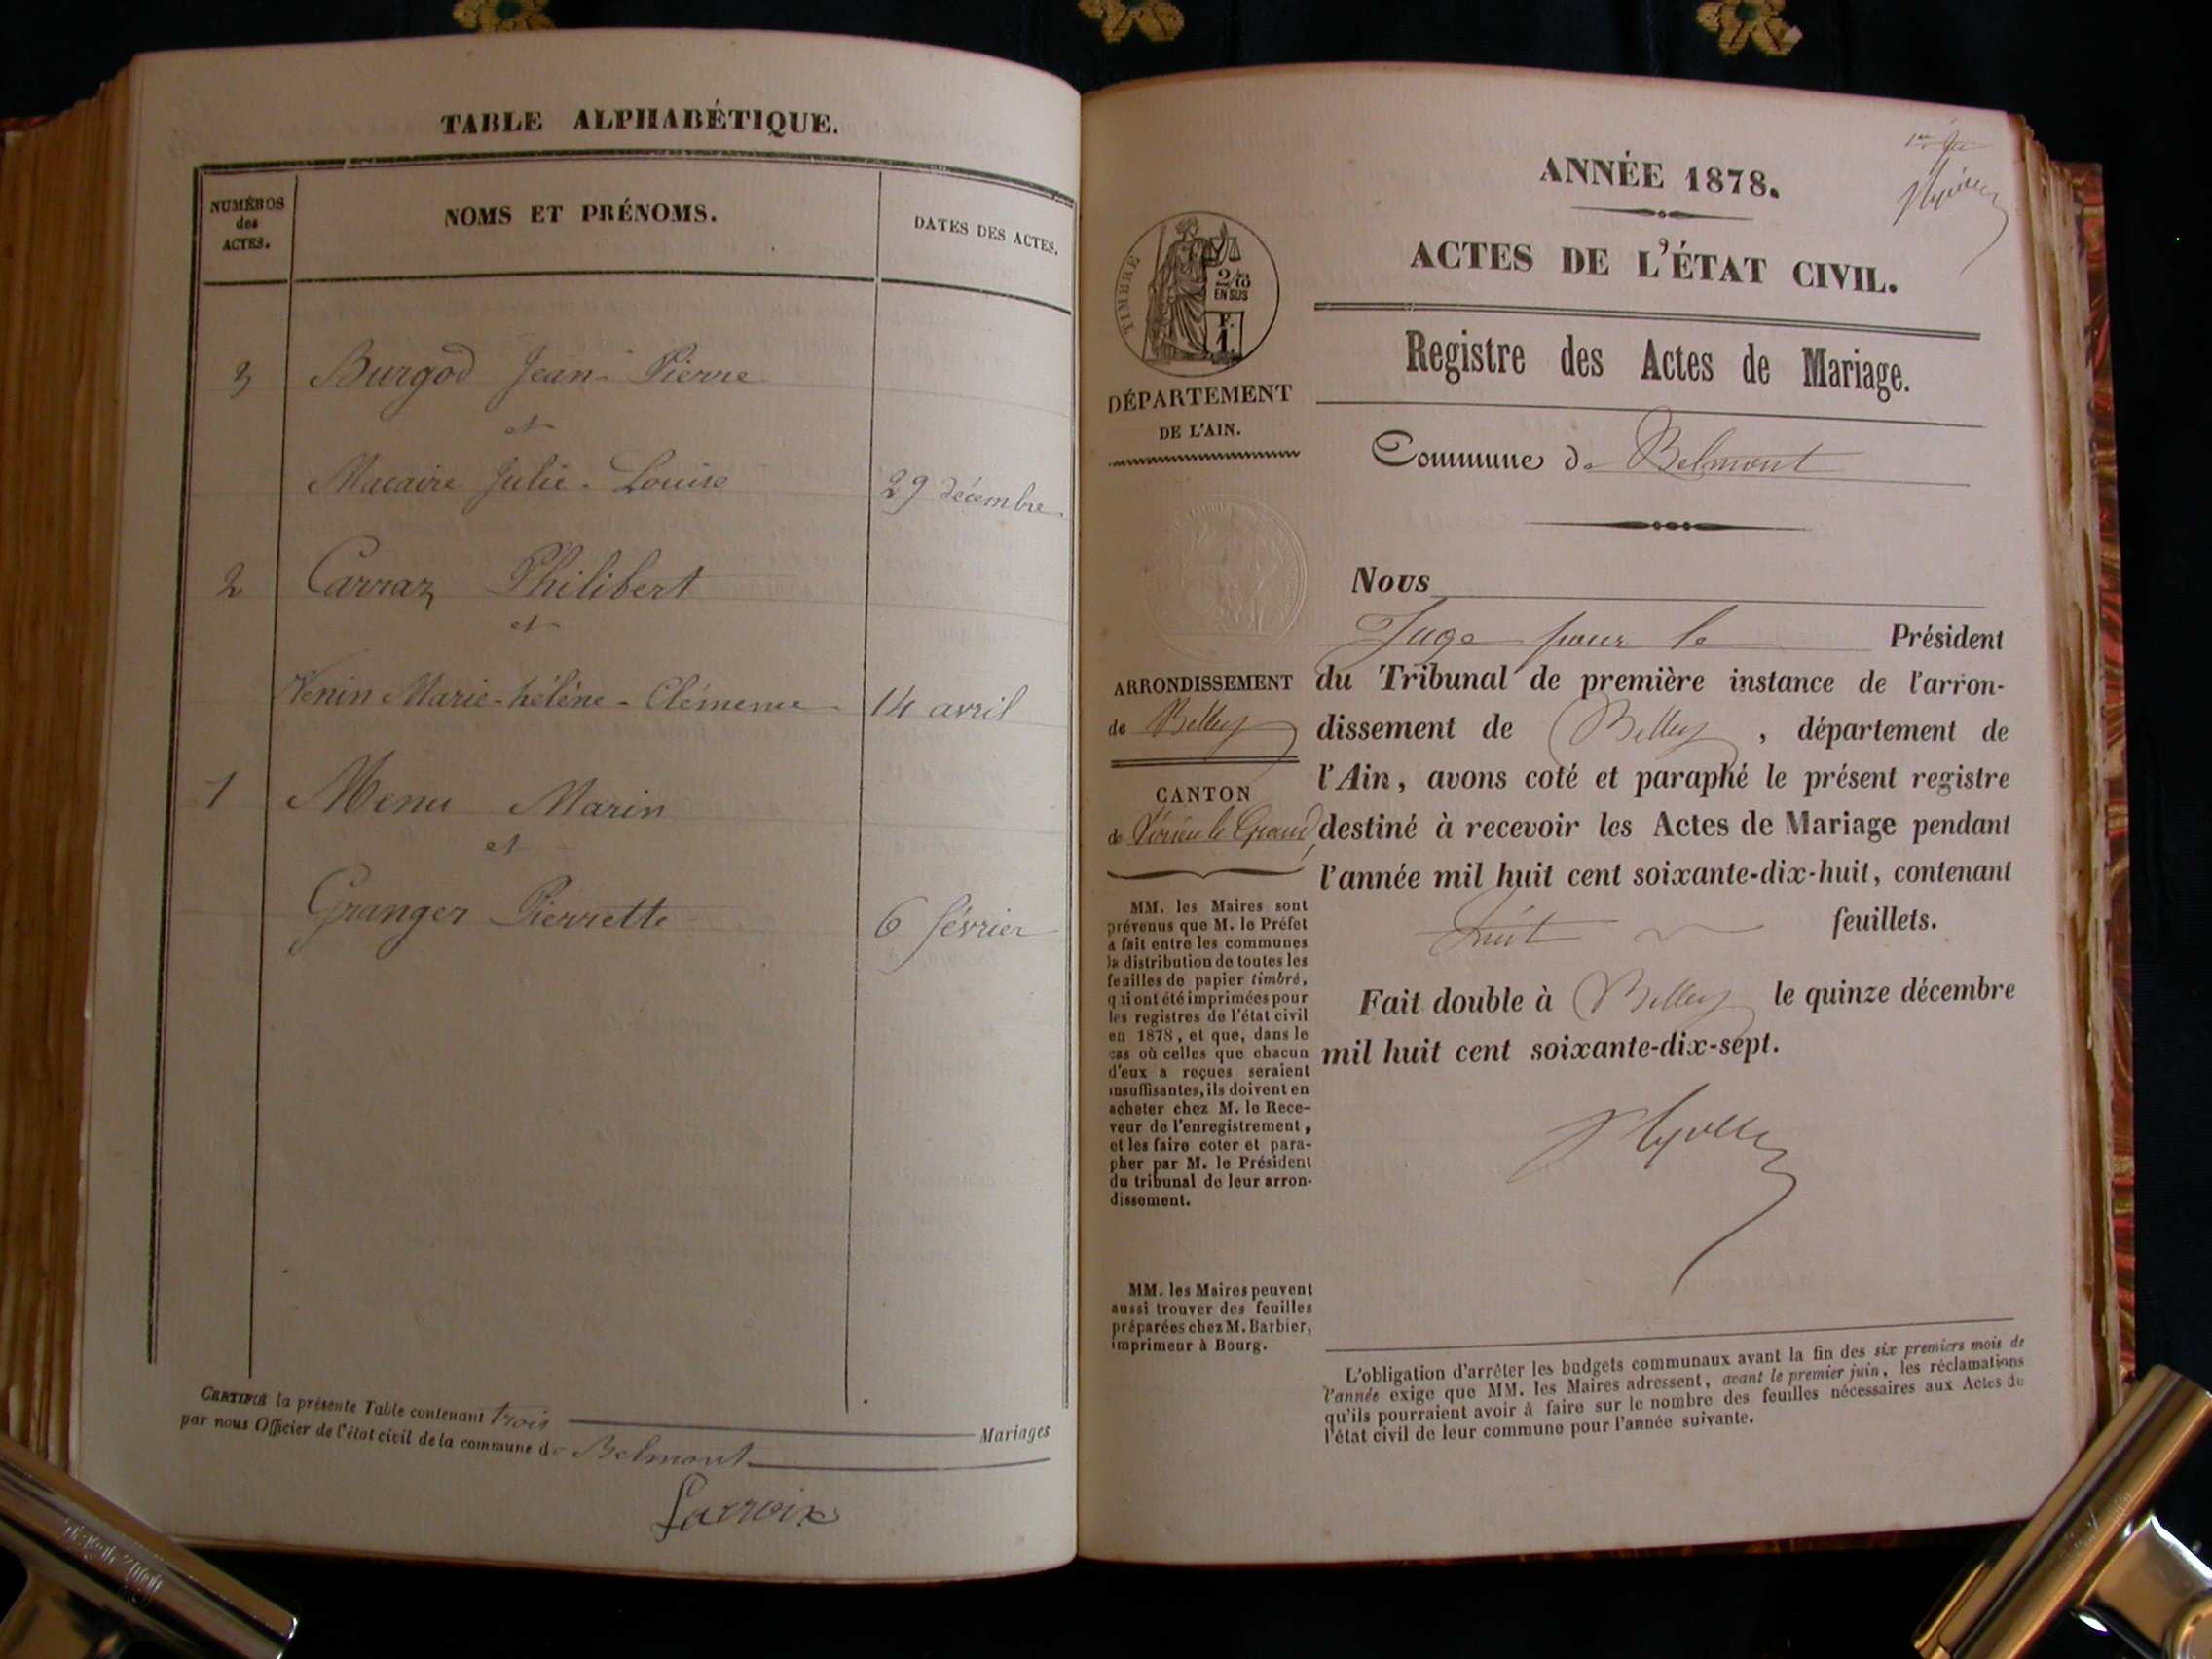 TABLE ALPHABÉTIQUE.
NUMÉROS
des
ACTES.
NOMS ET PRÉNOMS.
DATES DES ACTES.
3 Burgod Jean-Pierre
et
Macaire Julie-Louise 29 décembre
2 Carraz Philibert
et
Venin Marie-hélène-Clémence 14 avril
1 Menu Marin
et
Granger Pierrette 6 février
CERTIFIÉ la présente Table contenant trois Mariages
par nous Officier de l'état civil de la commune de Belmont
Lacroix
ANNÉE 1878.
ACTES DE L'ÉTAT CIVIL.
TIMBRE
2/10
EN SUS
F.
1.
DÉPARTEMENT
DE L'AIN.
ARRONDISSEMENT
de Belley
CANTON
de Virieu le Grand
MM. les Maires sont
prévenus que M. le Préfet
a fait entre les communes
la distribution de toutes les
feuilles de papier timbré,
qui ont été imprimées pour
les registres de l'état civil
en 1878, et que, dans le
cas où celles que chacun
d'eux a reçues seraient
insuffisantes, ils doivent en
acheter chez M. le Rece-
veur de l'enregistrement,
et les faire coter et para-
pher par M. le Président
du tribunal de leur arron-
dissement.
MM. les Maires peuvent
aussi trouver des feuilles
préparées chez M. Barbier,
imprimeur à Bourg.
Registre des Actes de Mariage.
Commune de Belmont
Nous
Juge pour le Président
du Tribunal de première instance de l'arron-
dissement de Belley, département de
l'Ain, avons coté et paraphé le présent registre
destiné à recevoir les Actes de Mariage pendant
l'année mil huit cent soixante-dix-huit, contenant
huit feuillets.
Fait double à Belley le quinze décembre
mil huit cent soixante-dix-sept.
L'obligation d'arrêter les budgets communaux avant la fin des six premiers mois de
l'année exige que MM. les Maires adressent, avant le premier juin, les réclamations
qu'ils pourraient avoir à faire sur le nombre des feuilles nécessaires aux Actes de
l'état civil de leur commune pour l'année suivante.